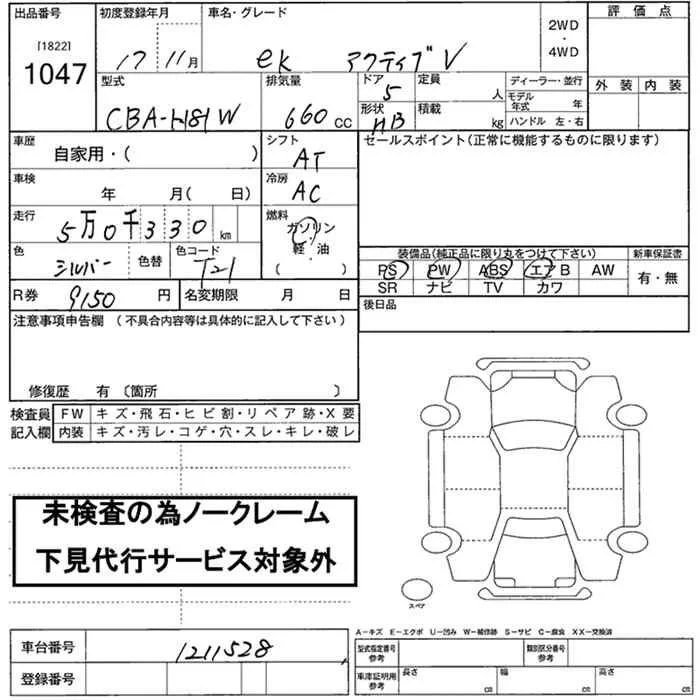 出品番号 初度登録年月 車名・グレード 評価点
[1822]
1047
17 11月 ek アクティブV 2WD・4WD
型式 排気量 ドア 定員 ディーラー・並行 外装 内装
CBA-H81W 660cc 5 人 モデル年式 年
形状 積載 HB kg ハンドル 左・右
車歴 シフト セールスポイント(正常に機能するものに限ります)
自家用・( ) AT
車検 冷房
年 月( 日) AC
走行 燃料
5万0千330km ガソリン
軽・油
( )
色 色替 色コード 装備品(純正品に限り丸をつけて下さい) 新車保証書
シルバー T21 PS PW ABS エアB AW 有・無
SR ナビ TV カワ
R券 9150円 名変期限 月 日 後日品
注意事項申告欄 (不具合内容等は具体的に記入して下さい)
修復歴 有 〔箇所 〕
検査員 FW キズ・飛石・ヒビ割・リペア跡・X要
記入欄 内装 キズ・汚レ・コゲ・穴・スレ・キレ・破レ
未検査の為ノークレーム
下見代行サービス対象外
スペア
A-キズ E-エクボ U-凹み W-補修跡 S-サビ C-腐食 XX-交換済
車台番号 1211528 型式指定番号 参考 類別区分番号 参考
登録番号 車庫証明用 参考 長さ cm 幅 cm 高さ cm